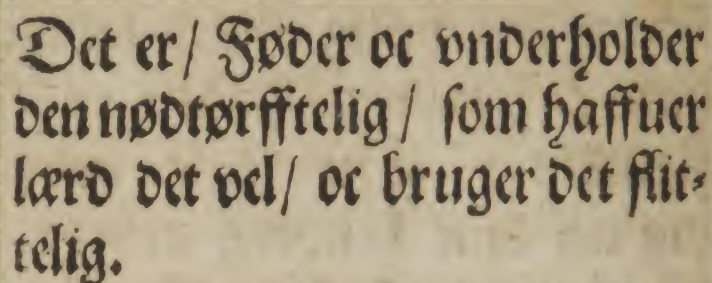 Det er/ Føder oc vnderholder
den nødtørfftelig/ som haffuer
lærd det vel/ oc bruger det flit⸗
telig.